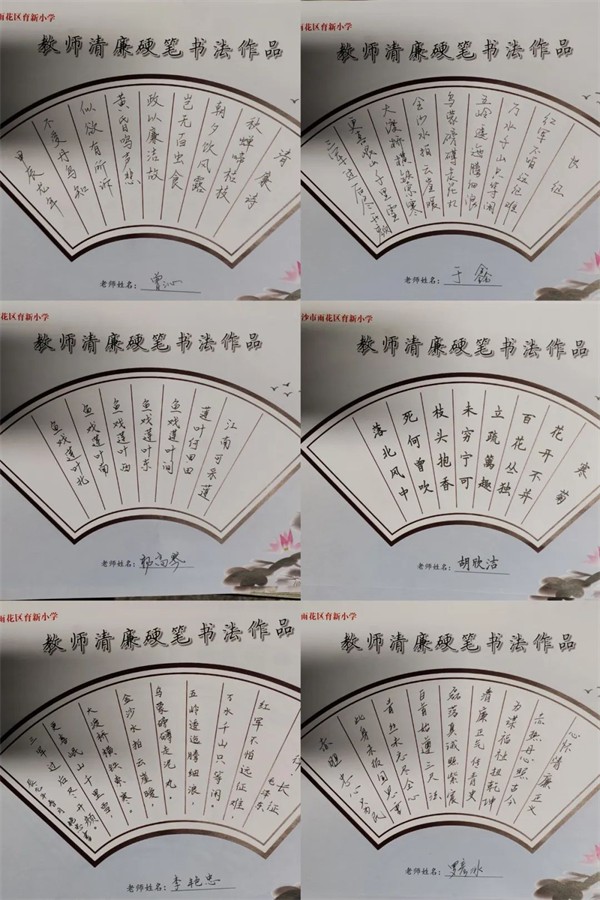 雨花区育新小学
教师清廉硬笔书法作品
清廉诗
秋蝉啼桂枝
朝夕饮风露
岂无百虫食
政以廉洁故
黄昏鸣声悲
似欲有所诉
不受行鸟知
甲辰龙年
老师姓名：曾沁
雨花区育新小学
教师清廉硬笔书法作品
长征
红军不怕远征难
万水千山只等闲
五岭逶迤腾细浪
乌蒙磅礴走泥丸
金沙水拍云崖暖
大渡桥横铁索寒
更喜岷山千里雪
三军过后尽开颜
老师姓名：于鑫
花区育新小学
教师清廉硬笔书法作品
江南可采莲
莲叶何田田
鱼戏莲叶间
鱼戏莲叶东
鱼戏莲叶西
鱼戏莲叶南
鱼戏莲叶北
老师姓名：
沙市雨花区育新小学
教师清廉硬笔书法作品
寒菊
花开不并
百花丛独
立疏篱趣
未穷宁可
枝头抱香
死何曾吹
落北风中
老师姓名：胡欣洁
雨花区育新小学
教师清廉硬笔书法作品
长征
毛泽东
红军不怕远征难，
万水千山只等闲。
五岭逶迤腾细浪，
乌蒙磅礴走泥丸。
金沙水拍云崖暖，
大渡桥横铁索寒。
更喜岷山千里雪，
三军过后尽开颜。
老师姓名：李艳忠
雨花区育新小学
教师清廉硬笔书法作品
心怀清廉正义
赤热丹心照古今
为谋福社担乾坤
清廉正气传青史
磊落真诚照紫宸
老师姓名：